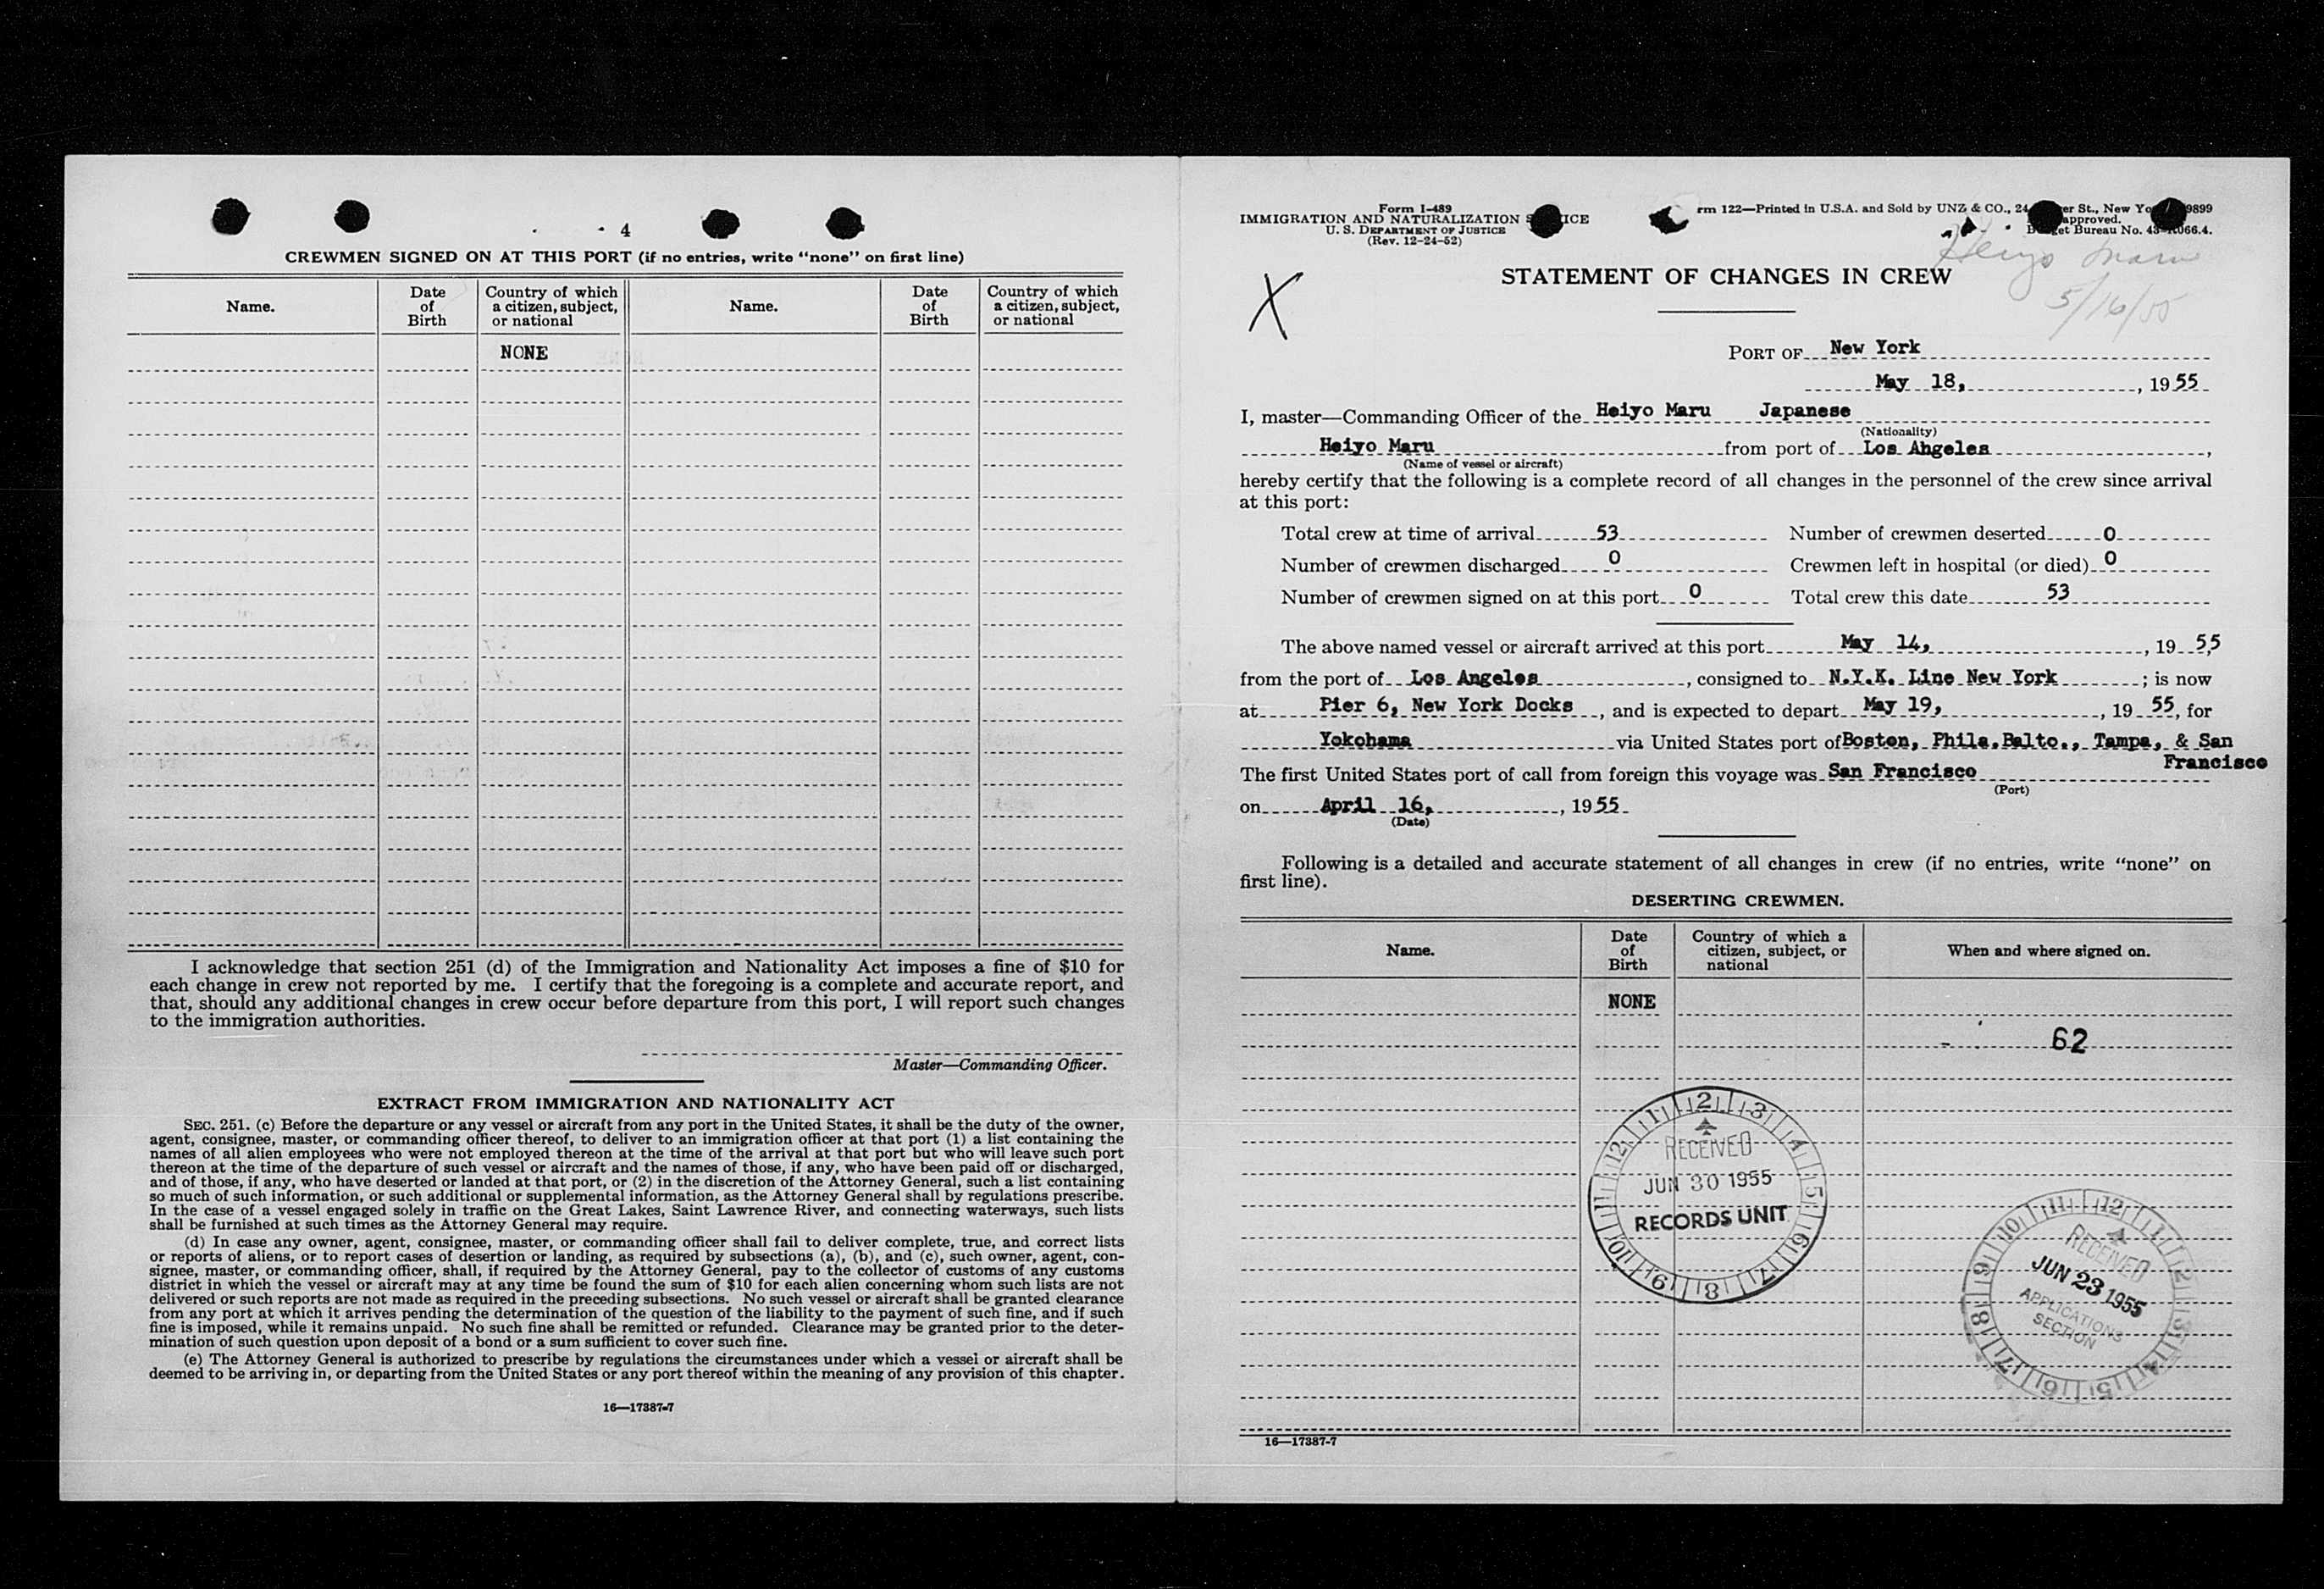 4
CREWMEN SIGNED ON AT THIS PORT (if no entries, write “none” on first line)
Name. Date of Birth Country of which a citizen, subject, or national Name. Date of Birth Country of which a citizen, subject, or national
NONE
I acknowledge that section 251 (d) of the Immigration and Nationality Act imposes a fine of $10 for
each change in crew not reported by me. I certify that the foregoing is a complete and accurate report, and
that, should any additional changes in crew occur before departure from this port, I will report such changes
to the immigration authorities.
Master—Commanding Officer.
EXTRACT FROM IMMIGRATION AND NATIONALITY ACT
SEC. 251. (c) Before the departure or any vessel or aircraft from any port in the United States, it shall be the duty of the owner,
agent, consignee, master, or commanding officer thereof, to deliver to an immigration officer at that port (1) a list containing the
names of all alien employees who were not employed thereon at the time of the arrival at that port but who will leave such port
thereon at the time of the departure of such vessel or aircraft and the names of those, if any, who have been paid off or discharged,
and of those, if any, who have deserted or landed at that port, or (2) in the discretion of the Attorney General, such a list containing
so much of such information, or such additional or supplemental information, as the Attorney General shall by regulations prescribe.
In the case of a vessel engaged solely in traffic on the Great Lakes, Saint Lawrence River, and connecting waterways, such lists
shall be furnished at such times as the Attorney General may require.
(d) In case any owner, agent, consignee, master, or commanding officer shall fail to deliver complete, true, and correct lists
or reports of aliens, or to report cases of desertion or landing, as required by subsections (a), (b), and (c), such owner, agent, con-
signee, master, or commanding officer, shall, if required by the Attorney General, pay to the collector of customs of any customs
district in which the vessel or aircraft may at any time be found the sum of $10 for each alien concerning whom such lists are not
delivered or such reports are not made as required in the preceding subsections. No such vessel or aircraft shall be granted clearance
from any port at which it arrives pending the determination of the question of the liability to the payment of such fine, and if such
fine is imposed, while it remains unpaid. No such fine shall be remitted or refunded. Clearance may be granted prior to the deter-
mination of such question upon deposit of a bond or a sum sufficient to cover such fine.
(e) The Attorney General is authorized to prescribe by regulations the circumstances under which a vessel or aircraft shall be
deemed to be arriving in, or departing from the United States or any port thereof within the meaning of any provision of this chapter.
16—17387-7
Form I-489
IMMIGRATION AND NATURALIZATION S ICE
U. S. DEPARTMENT OF JUSTICE
(Rev. 12-24-52)
rm 122—Printed in U.S.A. and Sold by UNZ & CO., 24 er St., New Yo 9899
approved.
et Bureau No. 43-R066.4.
Heiyo Maru
5/16/55
X
STATEMENT OF CHANGES IN CREW
PORT OF New York
May 18, , 19 55
I, master—Commanding Officer of the Heiyo Maru Japanese
(Nationality)
Heiyo Maru from port of Los Ahgeles ,
(Name of vessel or aircraft)
hereby certify that the following is a complete record of all changes in the personnel of the crew since arrival
at this port:
Total crew at time of arrival 53 Number of crewmen deserted 0
Number of crewmen discharged 0 Crewmen left in hospital (or died) 0
Number of crewmen signed on at this port 0 Total crew this date 53
The above named vessel or aircraft arrived at this port May 14, , 19 55
from the port of Los Angeles , consigned to N.Y.K. Line New York ; is now
at Pier 6, New York Docks , and is expected to depart May 19, , 19 55, for
Yokohama via United States port of Boston, Phila. Balto., Tampa, & San
Francisco
The first United States port of call from foreign this voyage was San Francisco
(Port)
on April 16, , 19 55
(Date)
Following is a detailed and accurate statement of all changes in crew (if no entries, write “none” on
first line).
DESERTING CREWMEN.
Name. Date of Birth Country of which a citizen, subject, or national When and where signed on.
NONE
62
1 2 3 4 5 6 7 8 9 10 11 12
RECEIVED
JUN 30 1955
RECORDS UNIT
11 12 1 2 3 4 5 6 7 8 9 10
RECEIVED
JUN 23 1955
APPLICATIONS
SECTION
16—17387-7